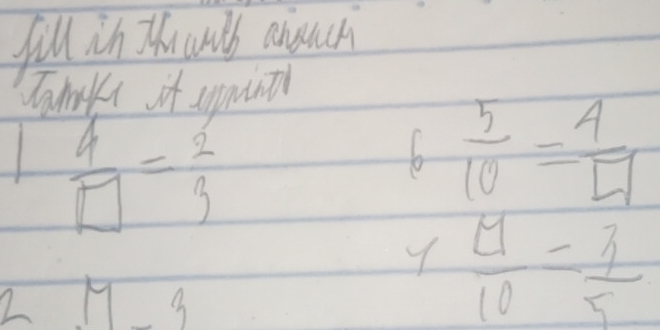 fill in the answer
to make it
1 4/□ = 2/3
6 5/10 = 4/□
7 □/10 = 3/5
2 □ = 3